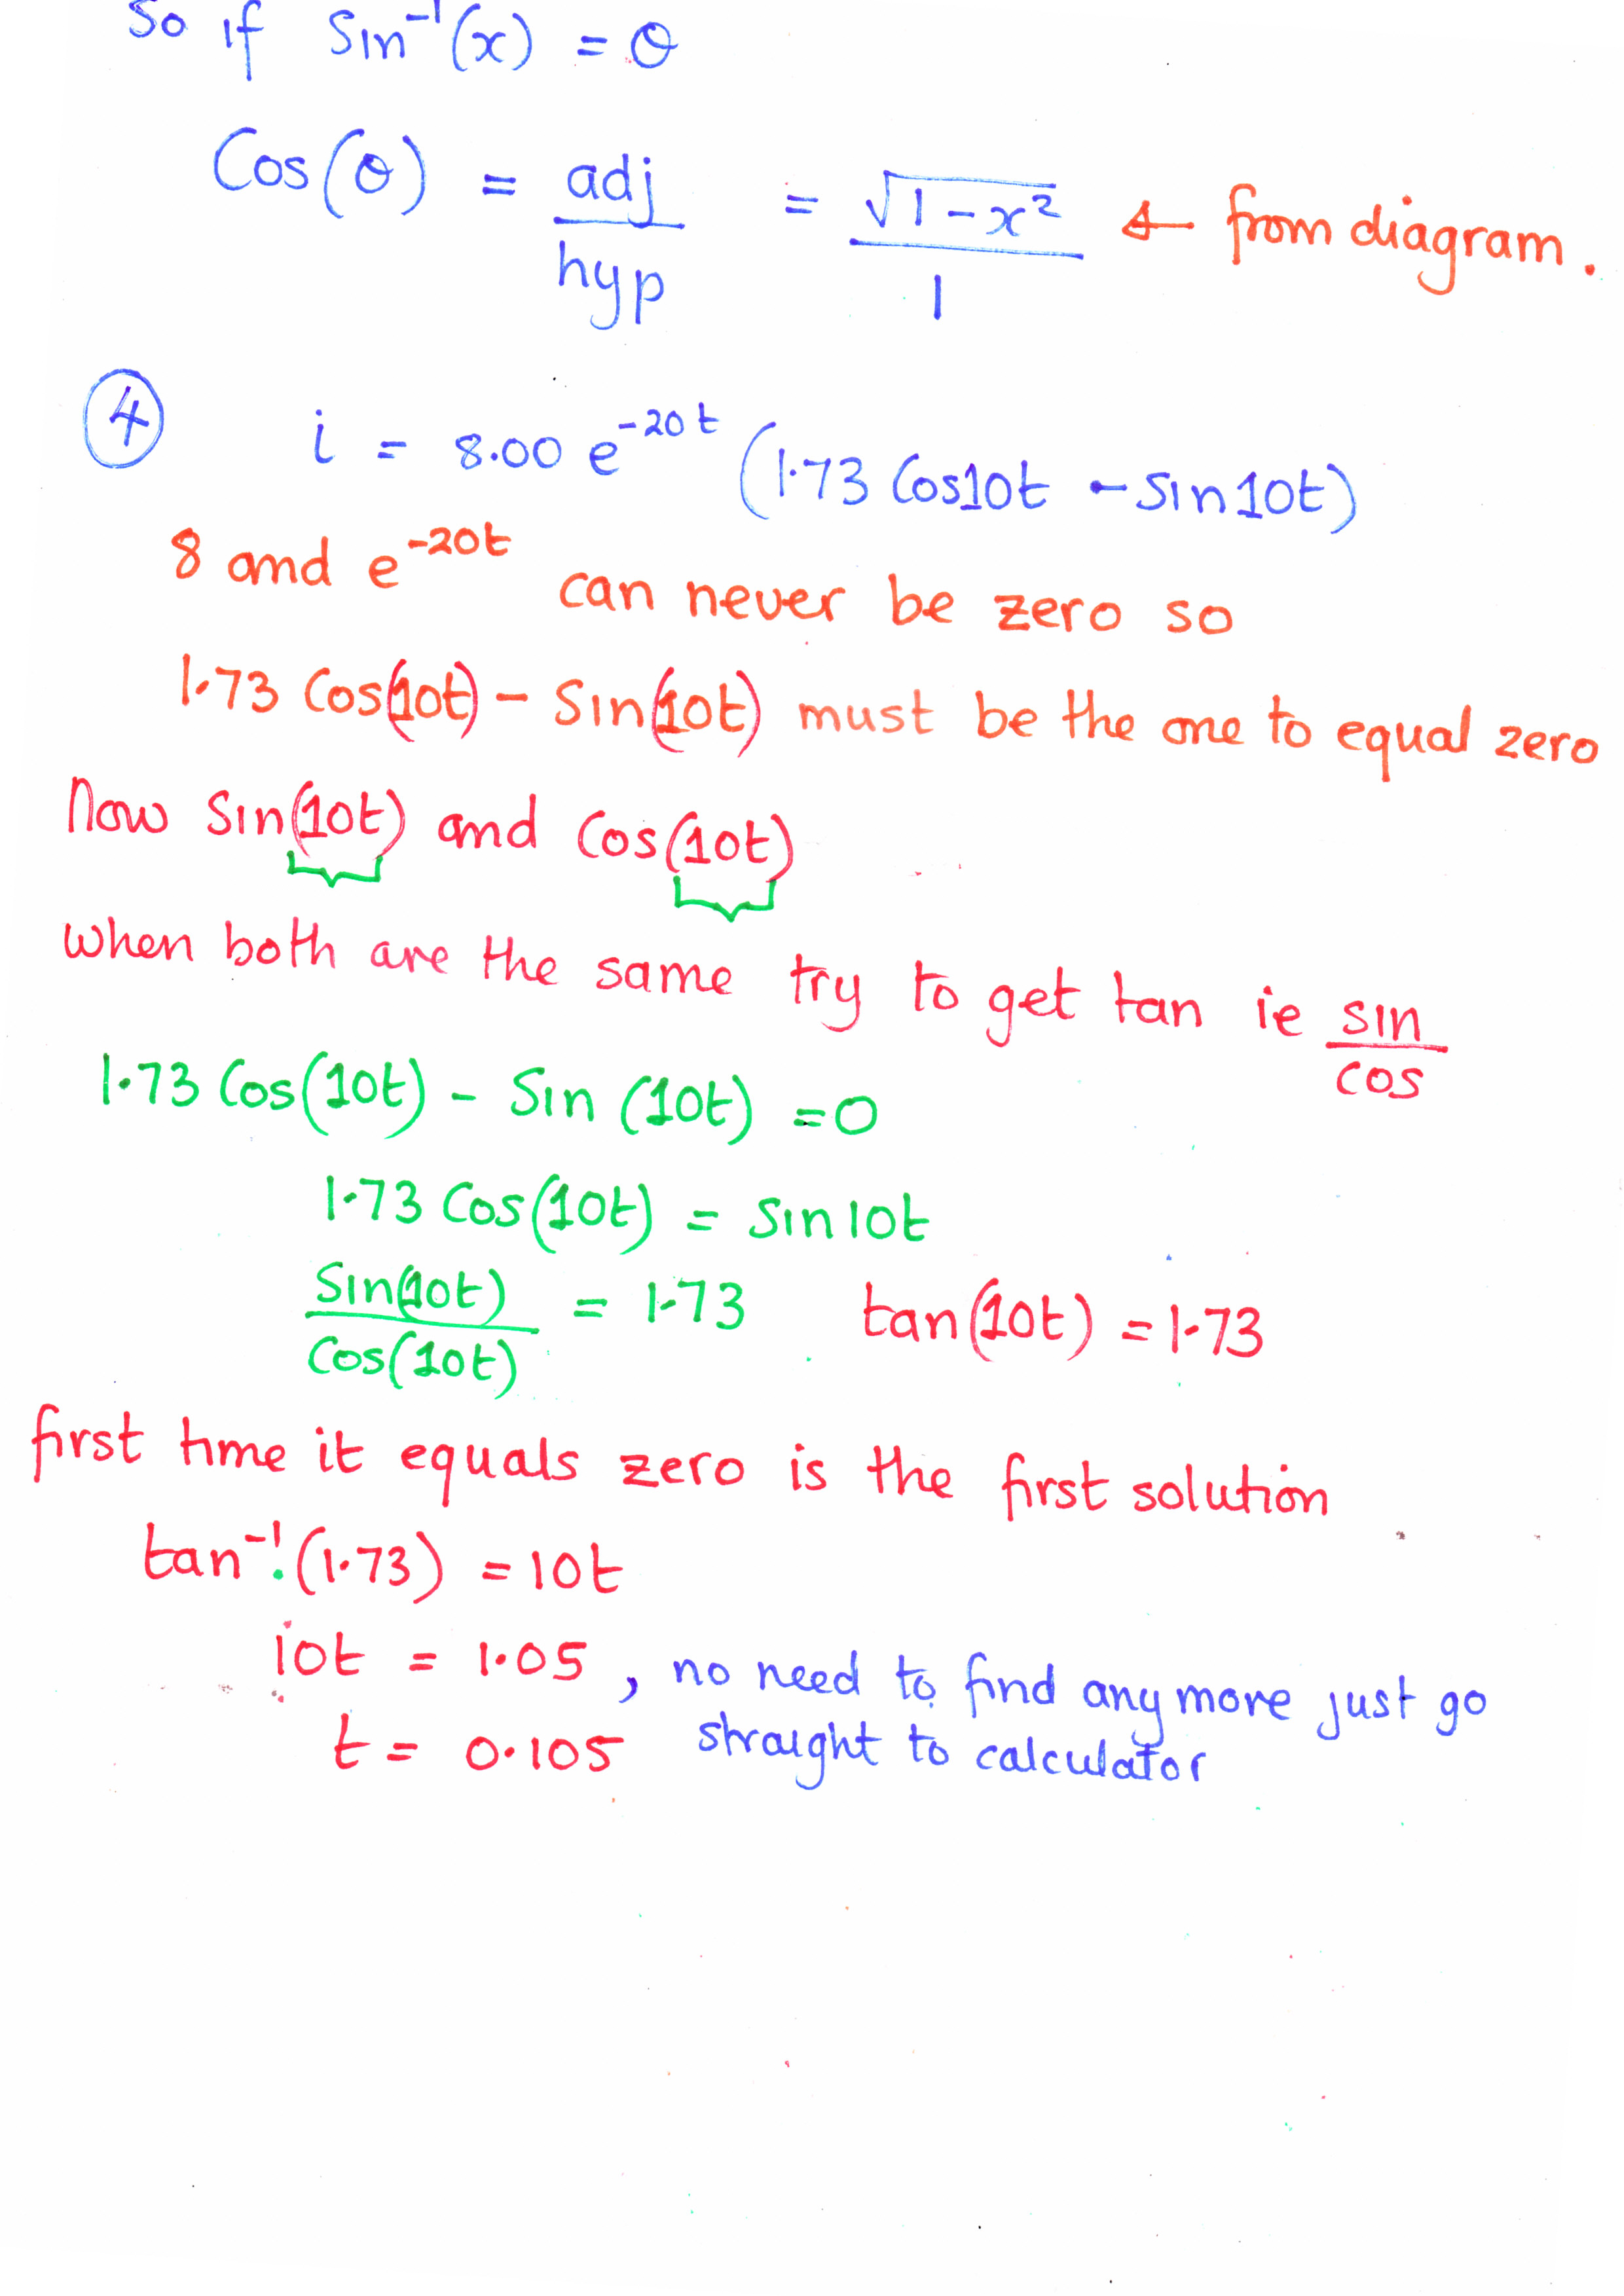 So if Sin⁻¹(x) = θ
Cos(θ) = adj/hyp = √(1-x²)/1 ← from diagram.
④ i = 8.00 e^(-20t) (1.73 Cos10t - Sin10t)
8 and e^(-20t) can never be zero so
1.73 Cos(10t) - Sin(10t) must be the one to equal zero
Now Sin(10t) and Cos(10t)
when both are the same try to get tan ie sin/cos
1.73 Cos(10t) - Sin (10t) = 0
1.73 Cos(10t) = Sin10t
Sin(10t)/Cos(10t) = 1.73 tan(10t) = 1.73
first time it equals zero is the first solution
tan⁻¹(1.73) = 10t
10t = 1.05 , no need to find any more just go
t = 0.105 straight to calculator